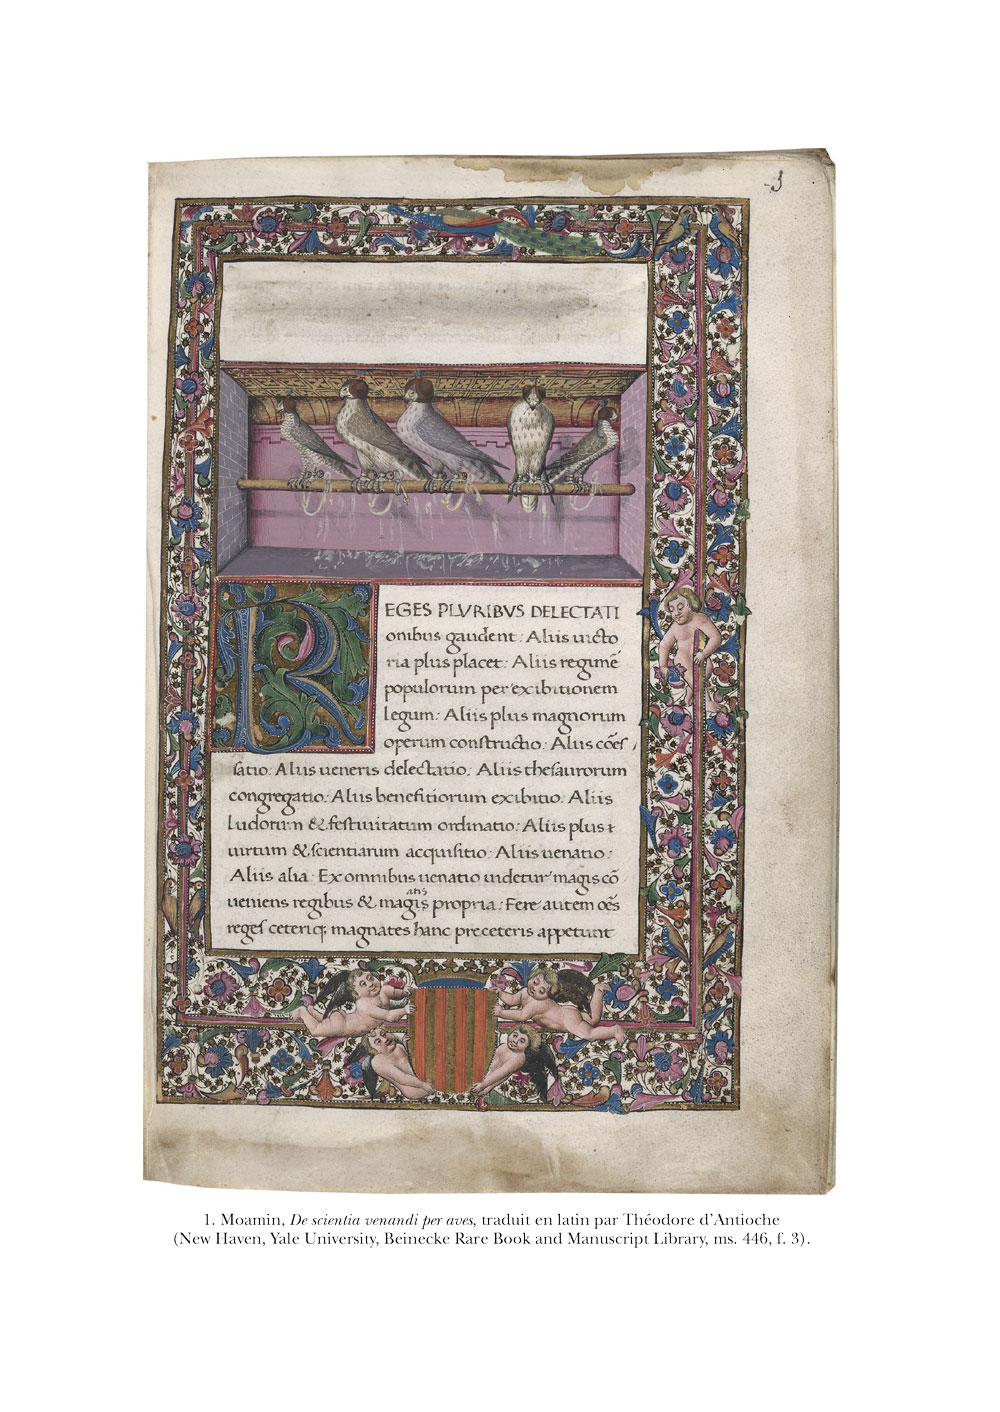 3
REGES PLVRIBVS DELECTATI
onibus gaudent: Aliis uicto
ria plus placet: Aliis regimē
populorum per exibitionem
legum: Aliis plus magnorum
operum constructio: Aliis cōes
satio: Aliis ueneris delectatio: Aliis thesaurorum
congregatio: Aliis benefitiorum exibitio: Aliis
ludorum & festiuitatum ordinatio: Aliis plus
uirtum & scientiarum acquisitio: Aliis uenatio:
Aliis alia: Ex omnibus uenatio uidetur magis cō
atis
ueniens regibus & magis propria: Fere autem oēs
reges ceteriq; magnates hanc preceteris appetunt
1. Moamin, De scientia venandi per aves, traduit en latin par Théodore d’Antioche
(New Haven, Yale University, Beinecke Rare Book and Manuscript Library, ms. 446, f. 3).